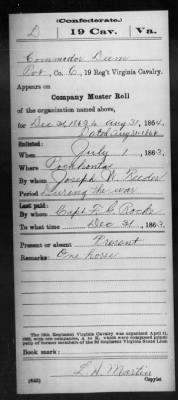 (Confederate.)
D 19 Cav. Va.
Commodor Dum
Pvt, Co. C, 19 Reg't Virginia Cavalry.
Appears on
Company Muster Roll
of the organization named above,
for Dec 31, 1863 to Aug 31, 1864.
Dated Aug 31, 1864
Enlisted:
When July 1, 1863.
Where Pocahontas
By whom Joseph W. Reeder
Period During the war
Last paid:
By whom Capt. F. C. Rocke
To what time Dec 31, 1863.
Present or absent Present
Remarks: One horse
The 19th Regiment Virginia Cavalry was organized April 11,
1863, with ten companies, A to K, which were composed princi-
pally of former members of the 3d Regiment Virginia State Line.
Book mark:
L. H. Martin
(642) Copyist